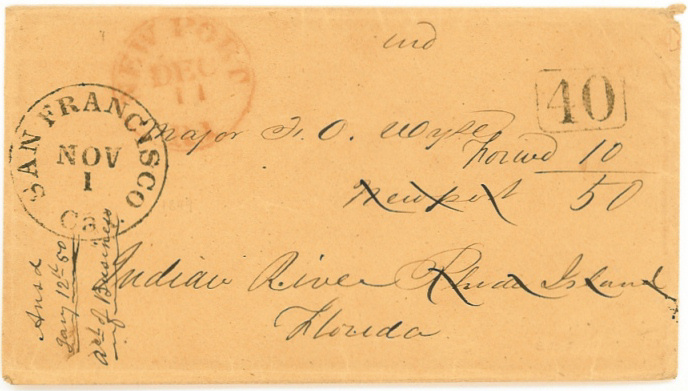 NEW PORT
DEC
11
SAN FRANCISCO
NOV
1
Ca
40
Major F. O. Wyse
Forwd 10
Newport 50
Indian River Rhode Island
Florida
Ansd
Jany 12th 50
of Business